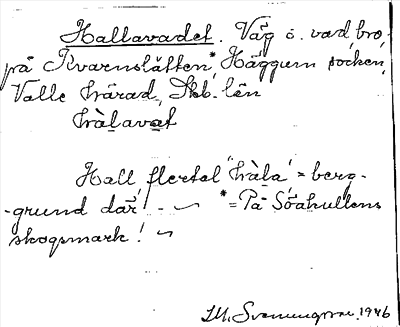 Hallavadet. Väg ö. vad, bro,
på Kvarnslätten*, Häggum socken,
Valle härad, Skb. län
hàlavat
Hall, flertal "hàla" = berg-
-grund där! - *= På Söahullens
skogsmark!
1946